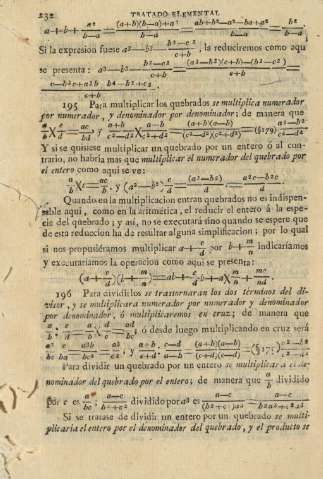 232 TRATADO ELEMENTAL
a+b+ a²/b—a = (a+b)(b—a)+a²/b—a = ab+b²—a²—ba+a²/b—a = b²/b—a
Si la expresion fuese a³—b³— b²—c²/c+b, la reduciremos como aqui
se presenta: a³—b³— b²—c²/c+b =
c+b
195 Para multiplicar los quebrados se multiplica numerador
por numerador, y denominador por denominador: de manera que
a/b X c/d = ac/bd, y
Y si se quisiese multiplicar un quebrado por un entero ó al con-
trario, no habria mas que multiplicar el numerador del quebrado por
el entero como aqui se ve:
a/b Xc= ac/b, y (a²—b²) c/d = a²c—b²c/d
Quando en la multiplicacion entran quebrados no es indispen-
sable aqui, como en la aritmética, el reducir el entero á la espe-
cie del quebrado; y asi, no se executará sino quando se espere que
de esta reduccion ha de resultar alguna simplificacion: por lo qual
si nos propusiéramos multiplicar a+ c/d por b+ m/n indicariamos
y executariamos la operacion como aqui se presenta:
(a+ c/d)(b+ m/n)=ab+ c/d b+a X m/n + mc/nd
196 Para dividirlos se trastornaran los dos términos del di-
visor, y se multiplicará numerador por numerador y denominador
por denominador, ó multiplicaremos en cruz; de manera que
a/b : c/d = a/b X d/c = ad/bc, ó desde luego multiplicando en cruz será
(§ 175)
Para dividir un quebrado por un entero se multiplicará el de-
nominador del quebrado por el entero; de manera que a/b dividido
por c es a/bc; a—c/b²+c² dividido por a² es a—c/(b²+c²)a² = a—c/b²a²+c²a²
Si se tratase de dividir un entero por un quebrado se multi-
plicaria el entero por el denominador del quebrado, y el producto se